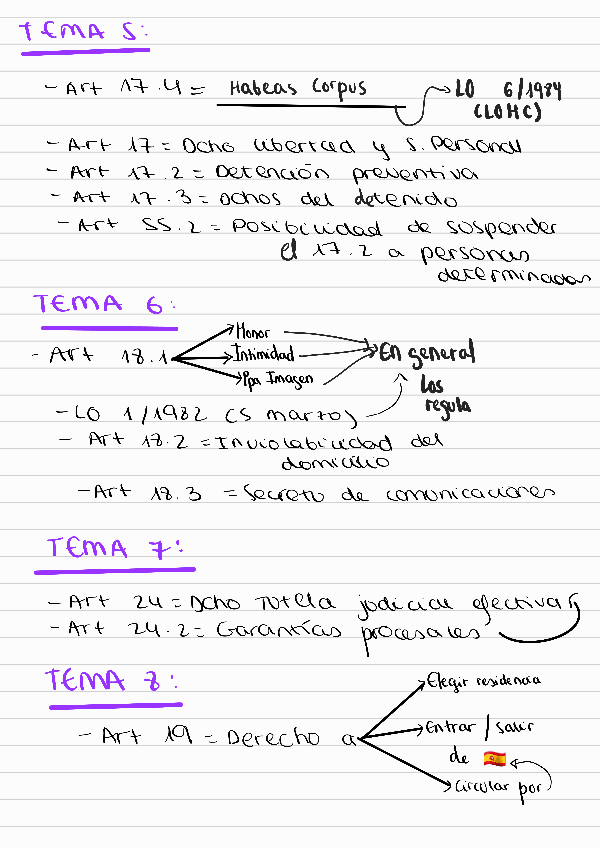 TEMA 5:
- Art 17.4 = Habeas Corpus → LO 6/1984
(LOHC)
- Art 17 = Dcho libertad y S. Personal
- Art 17.2 = Detención preventiva
- Art 17.3 = Dchos del detenido
- Art 55.2 = Posibilidad de suspender
el 17.2 a personas
determinadas
TEMA 6:
Honor
- Art 18.1 Intimidad En general
Ppa Imagen
las
regula
- LO 1/1982 (5 marzo)
- Art 18.2 = Inviolabilidad del
domicilio
- Art 18.3 = Secreto de comunicaciones
TEMA 7:
- Art 24 = Dcho Tutela judicial efectiva
- Art 24.2 = Garantías procesales
TEMA 8:
Elegir residencia
- Art 19 = Derecho a Entrar / salir
de 🇪🇸
Circular por